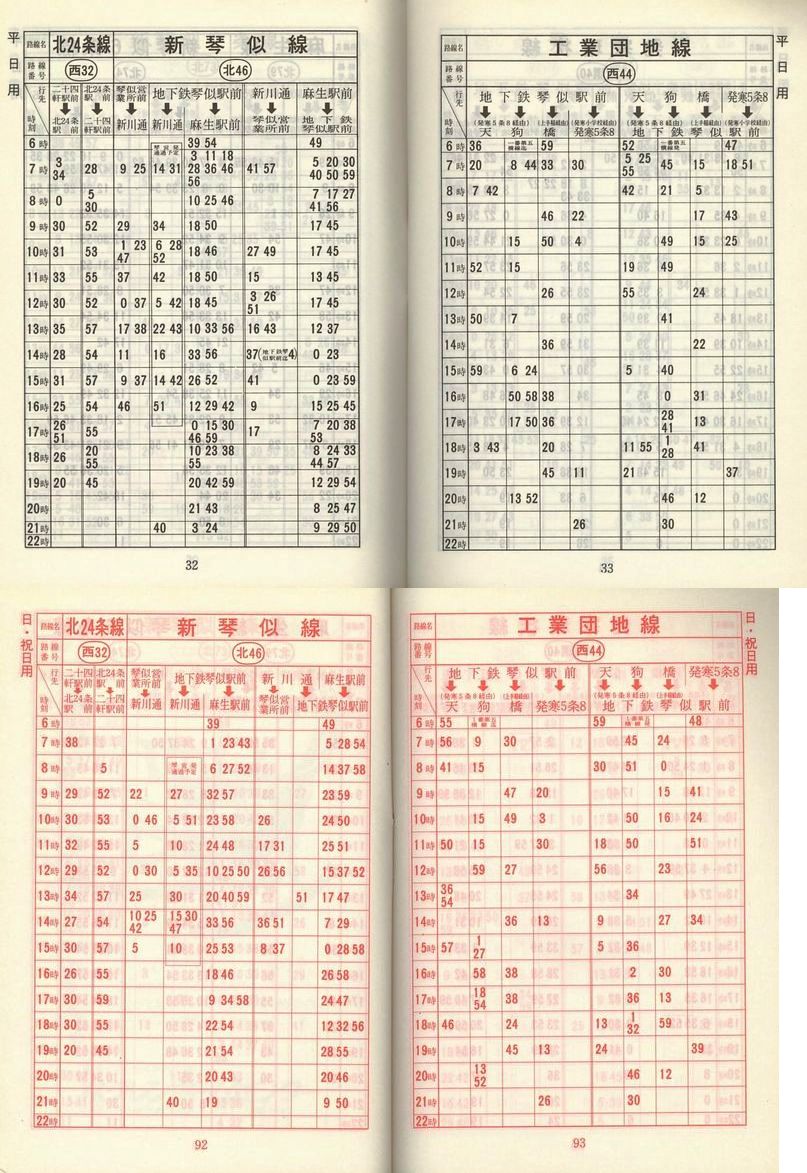 平日用
路線名 北24条線 新琴似線
路線番号 西32 北46
行先 二十四軒駅前 北24条駅前 琴似営業所前 地下鉄琴似駅前 新川通 麻生駅前
時刻 北24条駅前 二十四軒駅前 新川通 新川通 麻生駅前 琴似営業所前 地下鉄琴似駅前
6時 39 54 49
7時 3 34 28 9 25 14 31 3 11 18 28 36 46 56 41 57 5 20 30 40 50 59
8時 0 5 30 10 25 46 7 17 27 41 56
9時 30 52 29 34 18 50 17 45
10時 31 53 1 23 47 6 28 52 18 46 27 49 17 45
11時 33 55 37 42 18 50 15 13 45
12時 30 52 0 37 5 42 18 45 3 26 51 17 45
13時 35 57 17 38 22 43 10 33 56 16 43 12 37
14時 28 54 11 16 33 56 37(地下鉄琴似駅前迄4) 0 23
15時 31 57 9 37 14 42 26 52 41 0 23 59
16時 25 54 46 51 12 29 42 9 15 25 45
17時 26 51 55 0 15 30 46 59 17 7 20 38 53
18時 26 20 55 10 23 38 55 8 24 33 44 57
19時 20 45 20 42 59 12 29 54
20時 21 43 8 25 47
21時 40 3 24 9 29 50
22時
32
平日用
路線名 工業団地線
路線番号 西44
行先 地下鉄琴似駅前 天狗橋 発寒5条8
(発寒5条8経由) (上手稲経由) (発寒小学校経由) (発寒5条8経由) (上手稲経由) (発寒小学校経由)
時刻 天狗橋 発寒5条8 地下鉄琴似駅前
6時 36 59 52 47
7時 20 8 44 33 30 5 25 55 45 15 18 51
8時 7 42 42 21 5
9時 46 22 17 43
10時 15 50 4 49 15 25
11時 52 15 19 49
12時 26 55 24
13時 50 7 41
14時 36 22
15時 59 6 24 5 40
16時 50 58 38 0 31
17時 17 50 36 28 41 13
18時 3 43 20 11 55 1 28 41
19時 45 11 21 37
20時 13 52 46 12
21時 26 30
22時
33
日・祝日用
路線名 北24条線 新琴似線
路線番号 西32 北46
行先 二十四軒駅前 北24条駅前 琴似営業所前 地下鉄琴似駅前 新川通 麻生駅前
時刻 北24条駅前 二十四軒駅前 新川通 新川通 麻生駅前 琴似営業所前 地下鉄琴似駅前
6時 39 49
7時 38 1 23 43 5 28 54
8時 5 6 27 52 14 37 58
9時 29 52 22 27 32 57 23 59
10時 30 53 0 46 5 51 23 58 26 24 50
11時 32 55 5 10 24 48 17 31 25 51
12時 29 52 0 30 5 35 10 25 50 26 56 15 37 52
13時 34 57 25 30 20 40 59 51 17 47
14時 27 54 10 25 42 15 30 47 33 56 36 51 7 29
15時 30 57 5 10 25 53 8 37 0 28 58
16時 26 55 18 46 26 58
17時 30 59 9 34 58 24 47
18時 30 55 22 54 12 32 56
19時 20 45 21 54 28 55
20時 20 43 20 46
21時 40 19 9 50
22時
92
日・祝日用
路線名 工業団地線
路線番号 西44
行先 地下鉄琴似駅前 天狗橋 発寒5条8
(発寒5条8経由) (上手稲経由) (発寒5条8経由) (上手稲経由)
時刻 天狗橋 発寒5条8 地下鉄琴似駅前
6時 55 59 48
7時 56 9 30 45 24
8時 41 15 30 51 0
9時 47 20 15 41
10時 15 49 3 50 16 24
11時 50 15 30 18 50 51
12時 59 27 56 23
13時 36 54 34
14時 36 13 9 27 34
15時 57 1 27 5 36
16時 58 38 2 30
17時 18 54 38 36 13
18時 46 24 13 1 32 59
19時 45 13 24 39
20時 13 52 46 12
21時 26 30
22時
93